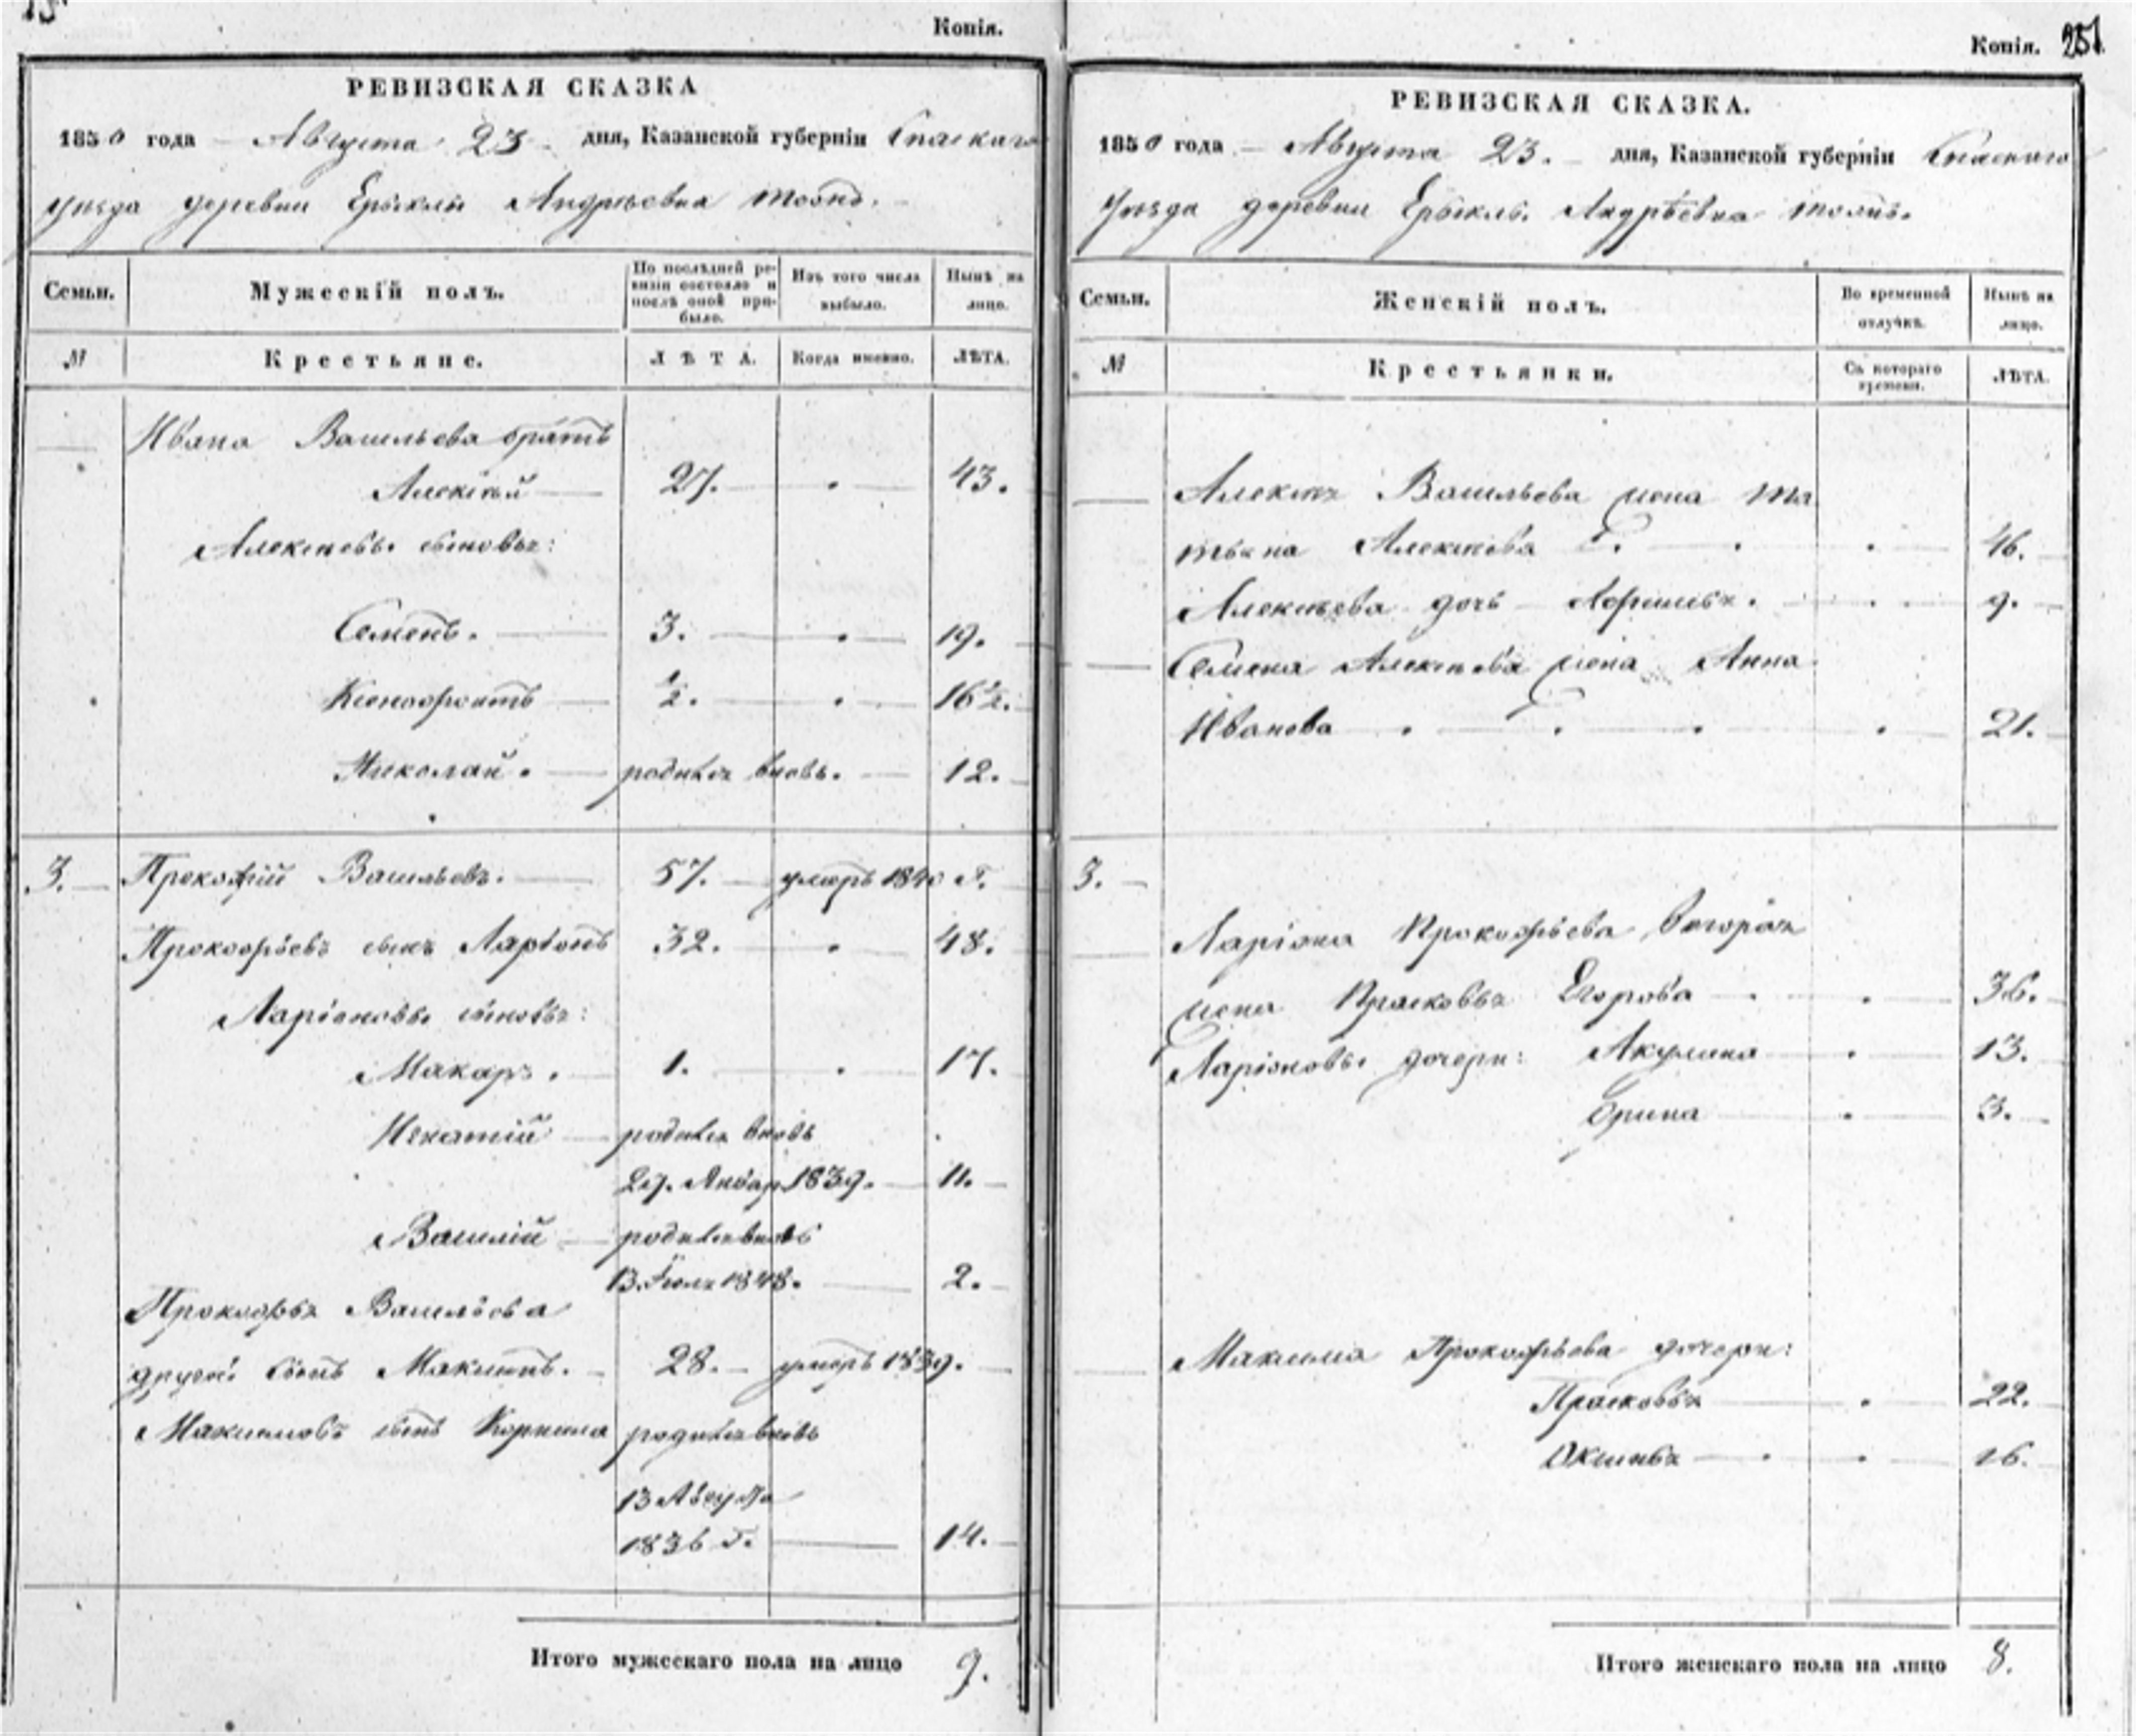 15.
Копія.
РЕВИЗСКАЯ СКАЗКА
1850 года Августа 23 дня, Казанской губерніи Спаскаго
уѣзда деревни Ерыклы Андрѣевка тожъ.
Семьи. Мужескій полъ. По послѣдней ревизіи состояло и послѣ оной прибыло. Изъ того числа выбыло. Нынѣ на лицо.
№ Крестьяне. ЛѢТА. Когда именно. ЛѢТА.
Ивана Васильева братъ
Алексѣй 27. 43.
Алексѣевы сыновья:
Семенъ. 3. 19.
Ксенофонтъ ½. 16½.
Николай. родился вновь. 12.
3. Прокофій Васильевъ. 57. умеръ 1840 г.
Прокофьевъ сынъ Ларіонъ 32. 48.
Ларіоновы сыновья:
Макаръ. 1. 17.
Игнатій родился вновь
29. Январ 1839. 11.
Василій родился вновь
13. Іюля 1848. 2.
Прокофья Васильева
другой сынъ Максимъ. 28. умеръ 1839.
Максимовъ сынъ Корнила родился вновь
13 Августа
1836 г. 14.
Итого мужескаго пола на лицо 9.
Копія. 251.
РЕВИЗСКАЯ СКАЗКА.
1850 года Августа 23. дня, Казанской губерніи Спаскаго
Уѣзда деревни Ерыклы. Андрѣевка тожъ.
Семьи. Женскій полъ. Во временной отлучкѣ. Нынѣ на лицо.
№ Крестьянки. Съ котораго времени. ЛѢТА.
Алексѣя Васильева жена Та
тьяна Алексѣева 46.
Алексѣева дочь 9.
Семена Алексѣева жена Анна
Иванова 21.
3.
Ларіона Прокофьева вторая
жена Прасковья Егорова 36.
Ларіоновы дочери: Акулина 13.
Орина 3.
Максима Прокофьева дочери:
Прасковья 22.
Оксинья 16.
Итого женскаго пола на лицо 8.